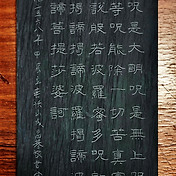 呪是大明呪是無上呪
等呪能除一切苦真實
說般若波羅蜜多呪即
揭諦揭諦波羅揭諦波
諦菩提娑婆訶